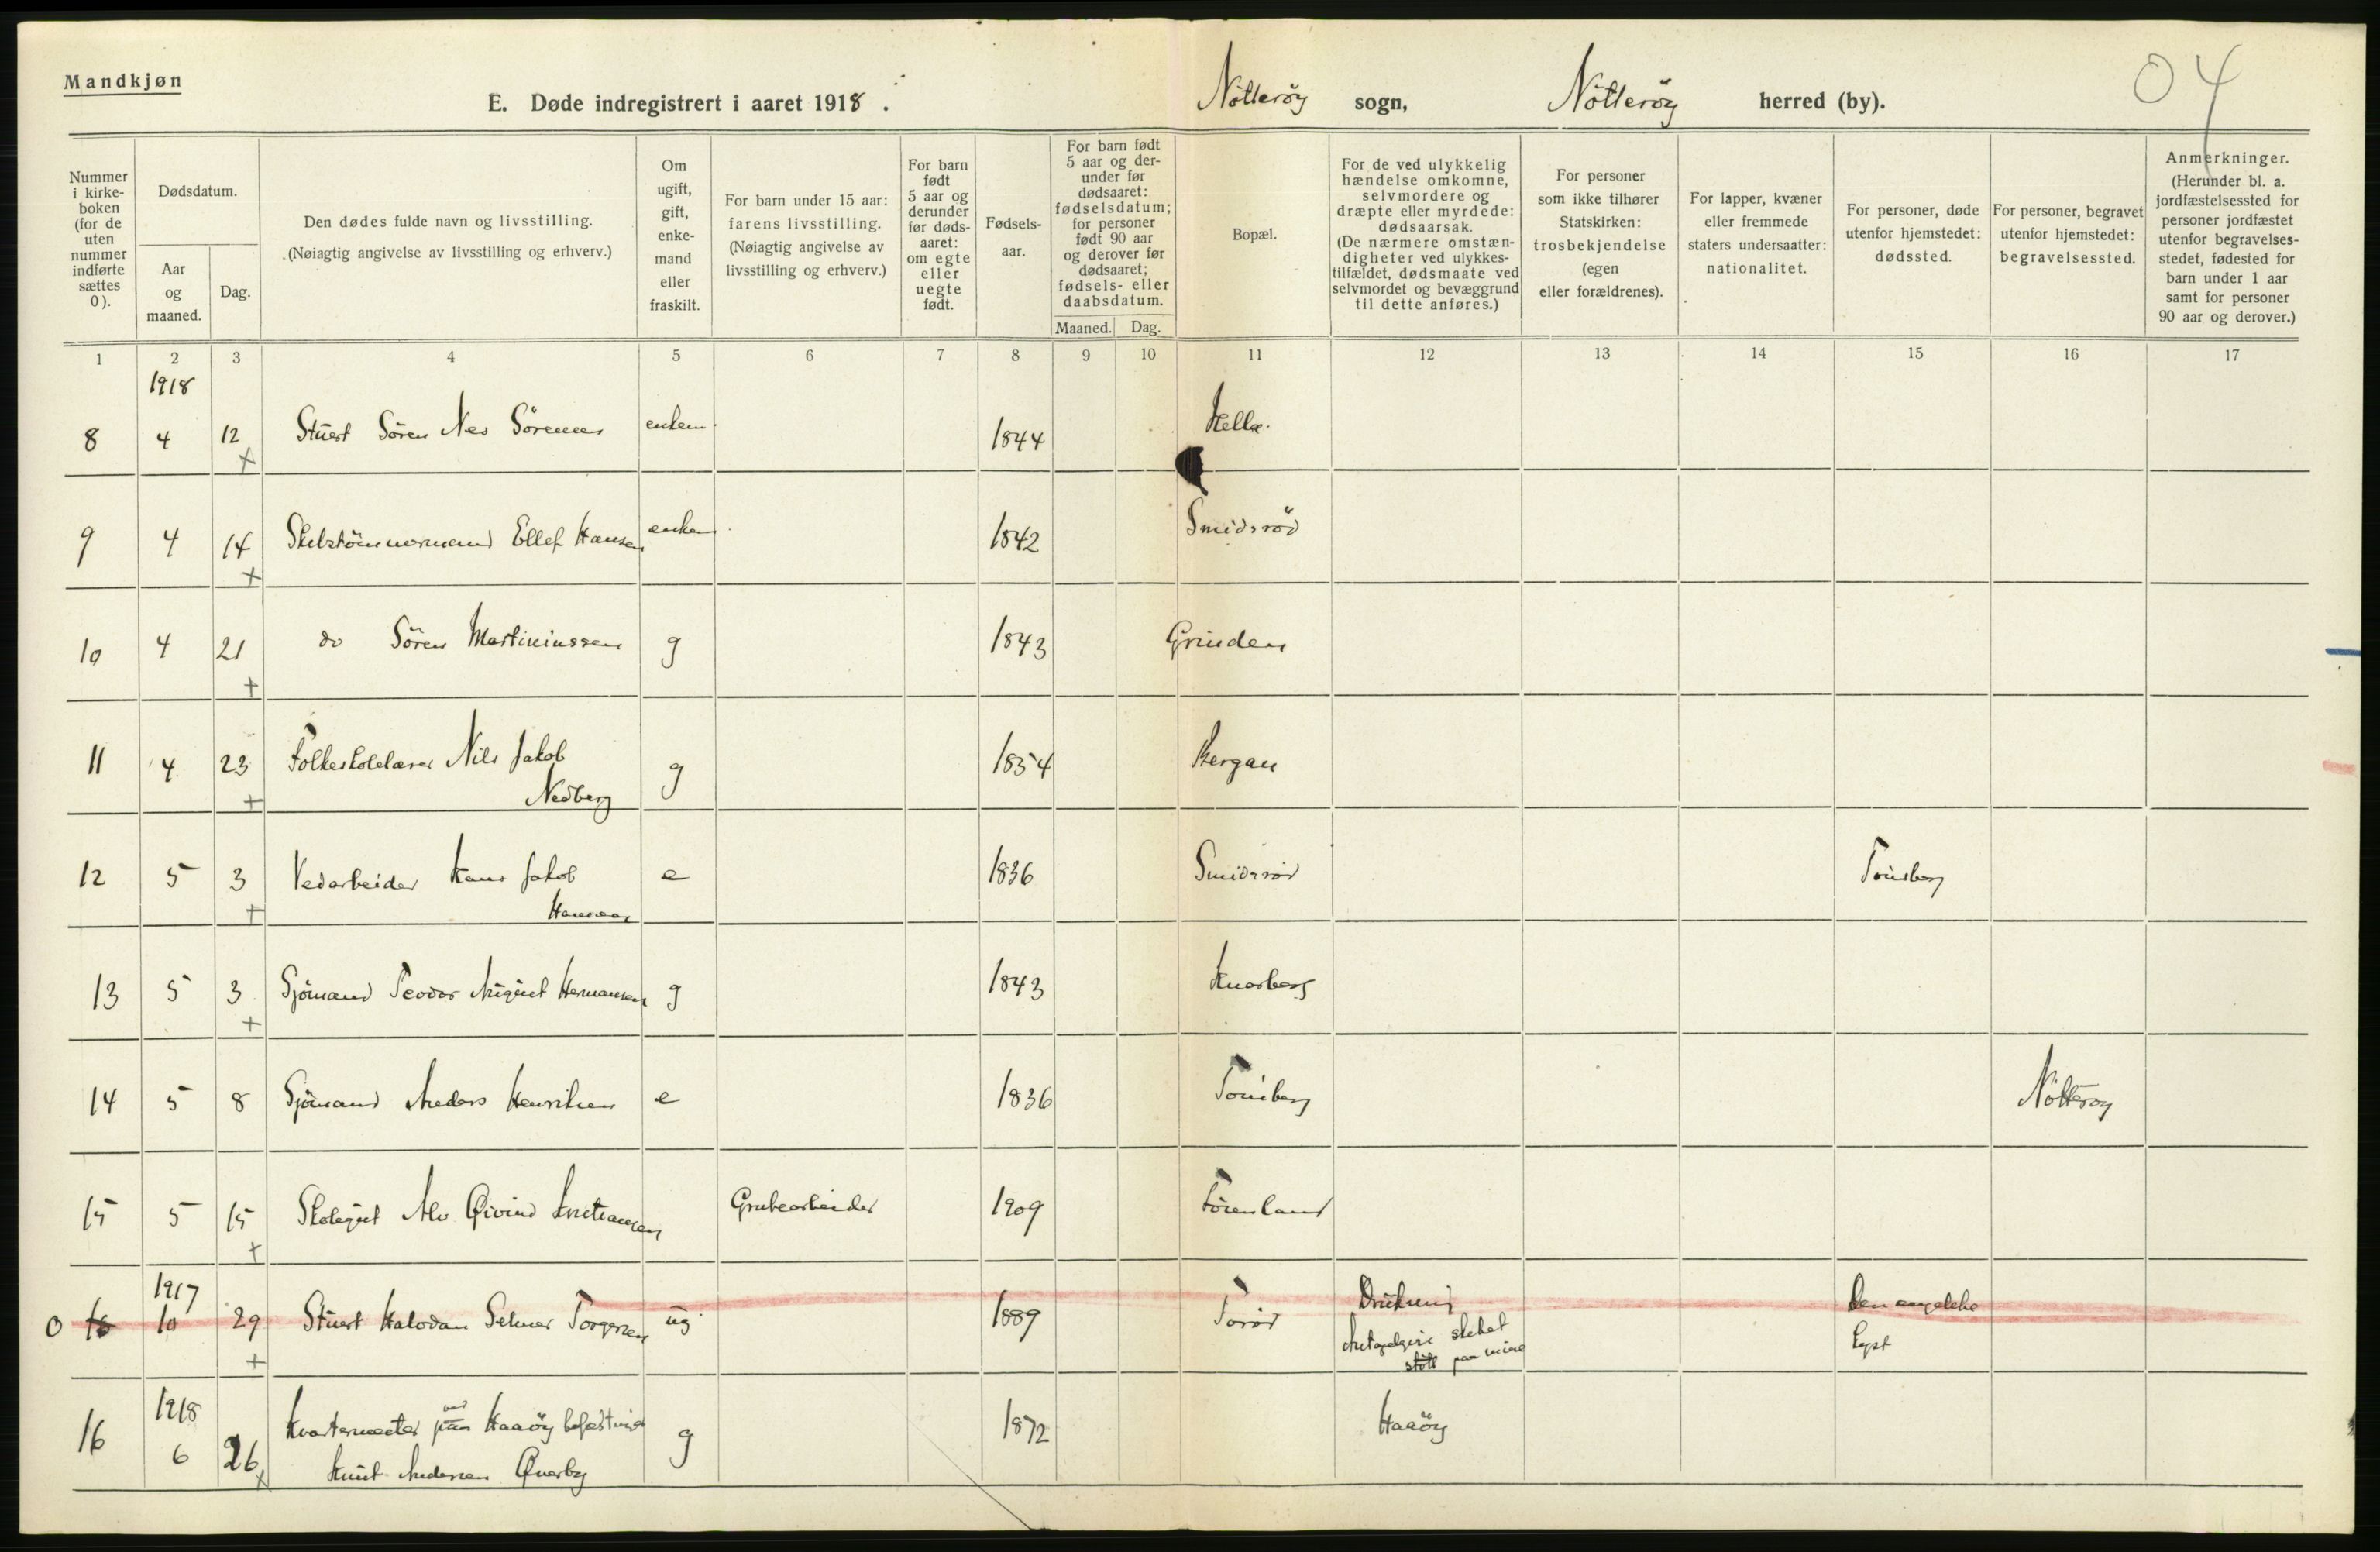 Mandkjøn
E. Døde indregistrert i aaret 1918 .
Nötteröy sogn, Nötteröy herred (by).
04
Nummer i kirke-boken (for de uten nummer indførte sættes 0).
Dødsdatum.
Aar og maaned.
Dag.
Den dødes fulde navn og livsstilling.
(Nøiagtig angivelse av livsstilling og erhverv.)
Om ugift, gift, enke-mand eller fraskilt.
For barn under 15 aar: farens livsstilling. (Nøiagtig angivelse av livsstilling og erhverv.)
For barn født 5 aar og derunder før døds-aaret: om egte eller uegte født.
Fødsels-aar.
For barn født 5 aar og der-under før dødsaaret: fødselsdatum; for personer født 90 aar og derover før dødsaaret; fødsels- eller daabsdatum.
Maaned. Dag.
Bopæl.
For de ved ulykkelig hændelse omkomne, selvmordere og dræpte eller myrdede: dødsaarsak. (De nærmere omstæn-digheter ved ulykkes-tilfældet, dødsmaate ved selvmordet og bevæggrund til dette anføres.)
For personer som ikke tilhører Statskirken: trosbekjendelse (egen eller forældrenes).
For lapper, kvæner eller fremmede staters undersaatter: nationalitet.
For personer, døde utenfor hjemstedet: dødssted.
For personer, begravet utenfor hjemstedet: begravelsessted.
Anmerkninger. (Herunder bl. a. jordfæstelsessted for personer jordfæstet utenfor begravelses-stedet, fødested for barn under 1 aar samt for personer 90 aar og derover.)
1 2 3 4 5 6 7 8 9 10 11 12 13 14 15 16 17
1918
8 4 12 Stuert Sören Nes Sörensen enkem. 1844 Hella.
+
9 4 14 Skibstömmermand Ellef Hansen enkem 1842 Smidsröd
+
10 4 21 do Sören Martiniussen g 1843 Grinden
+
11 4 23 Folkeskolelærer Nils Jakob g 1854 Bergan
+ Nedberg
12 5 3 Vedarbeider Hans Jakob e 1836 Smidsröd Tönsberg
+ Hansen
13 5 3 Sjömand Teodor August Hermansen g 1843 Knarberg
+
14 5 8 Sjömand Anders Henriksen e 1836 Tönsberg Nötteröy
15 5 15 Skolegut Alv Øivind Kristiansen Grubearbeider 1909 Förenland
+
1917
0 16 10 29 Stuert Halvdan Selmer Torgersen ug 1889 Toröd Drukning Den engelske
+ Antagelgvis skibet stött paa mine kyst
1918
16 6 26 Kvartermester paa ved Haaöy befæstning g 1872 Haaöy
+ Knut Andersen Øverby